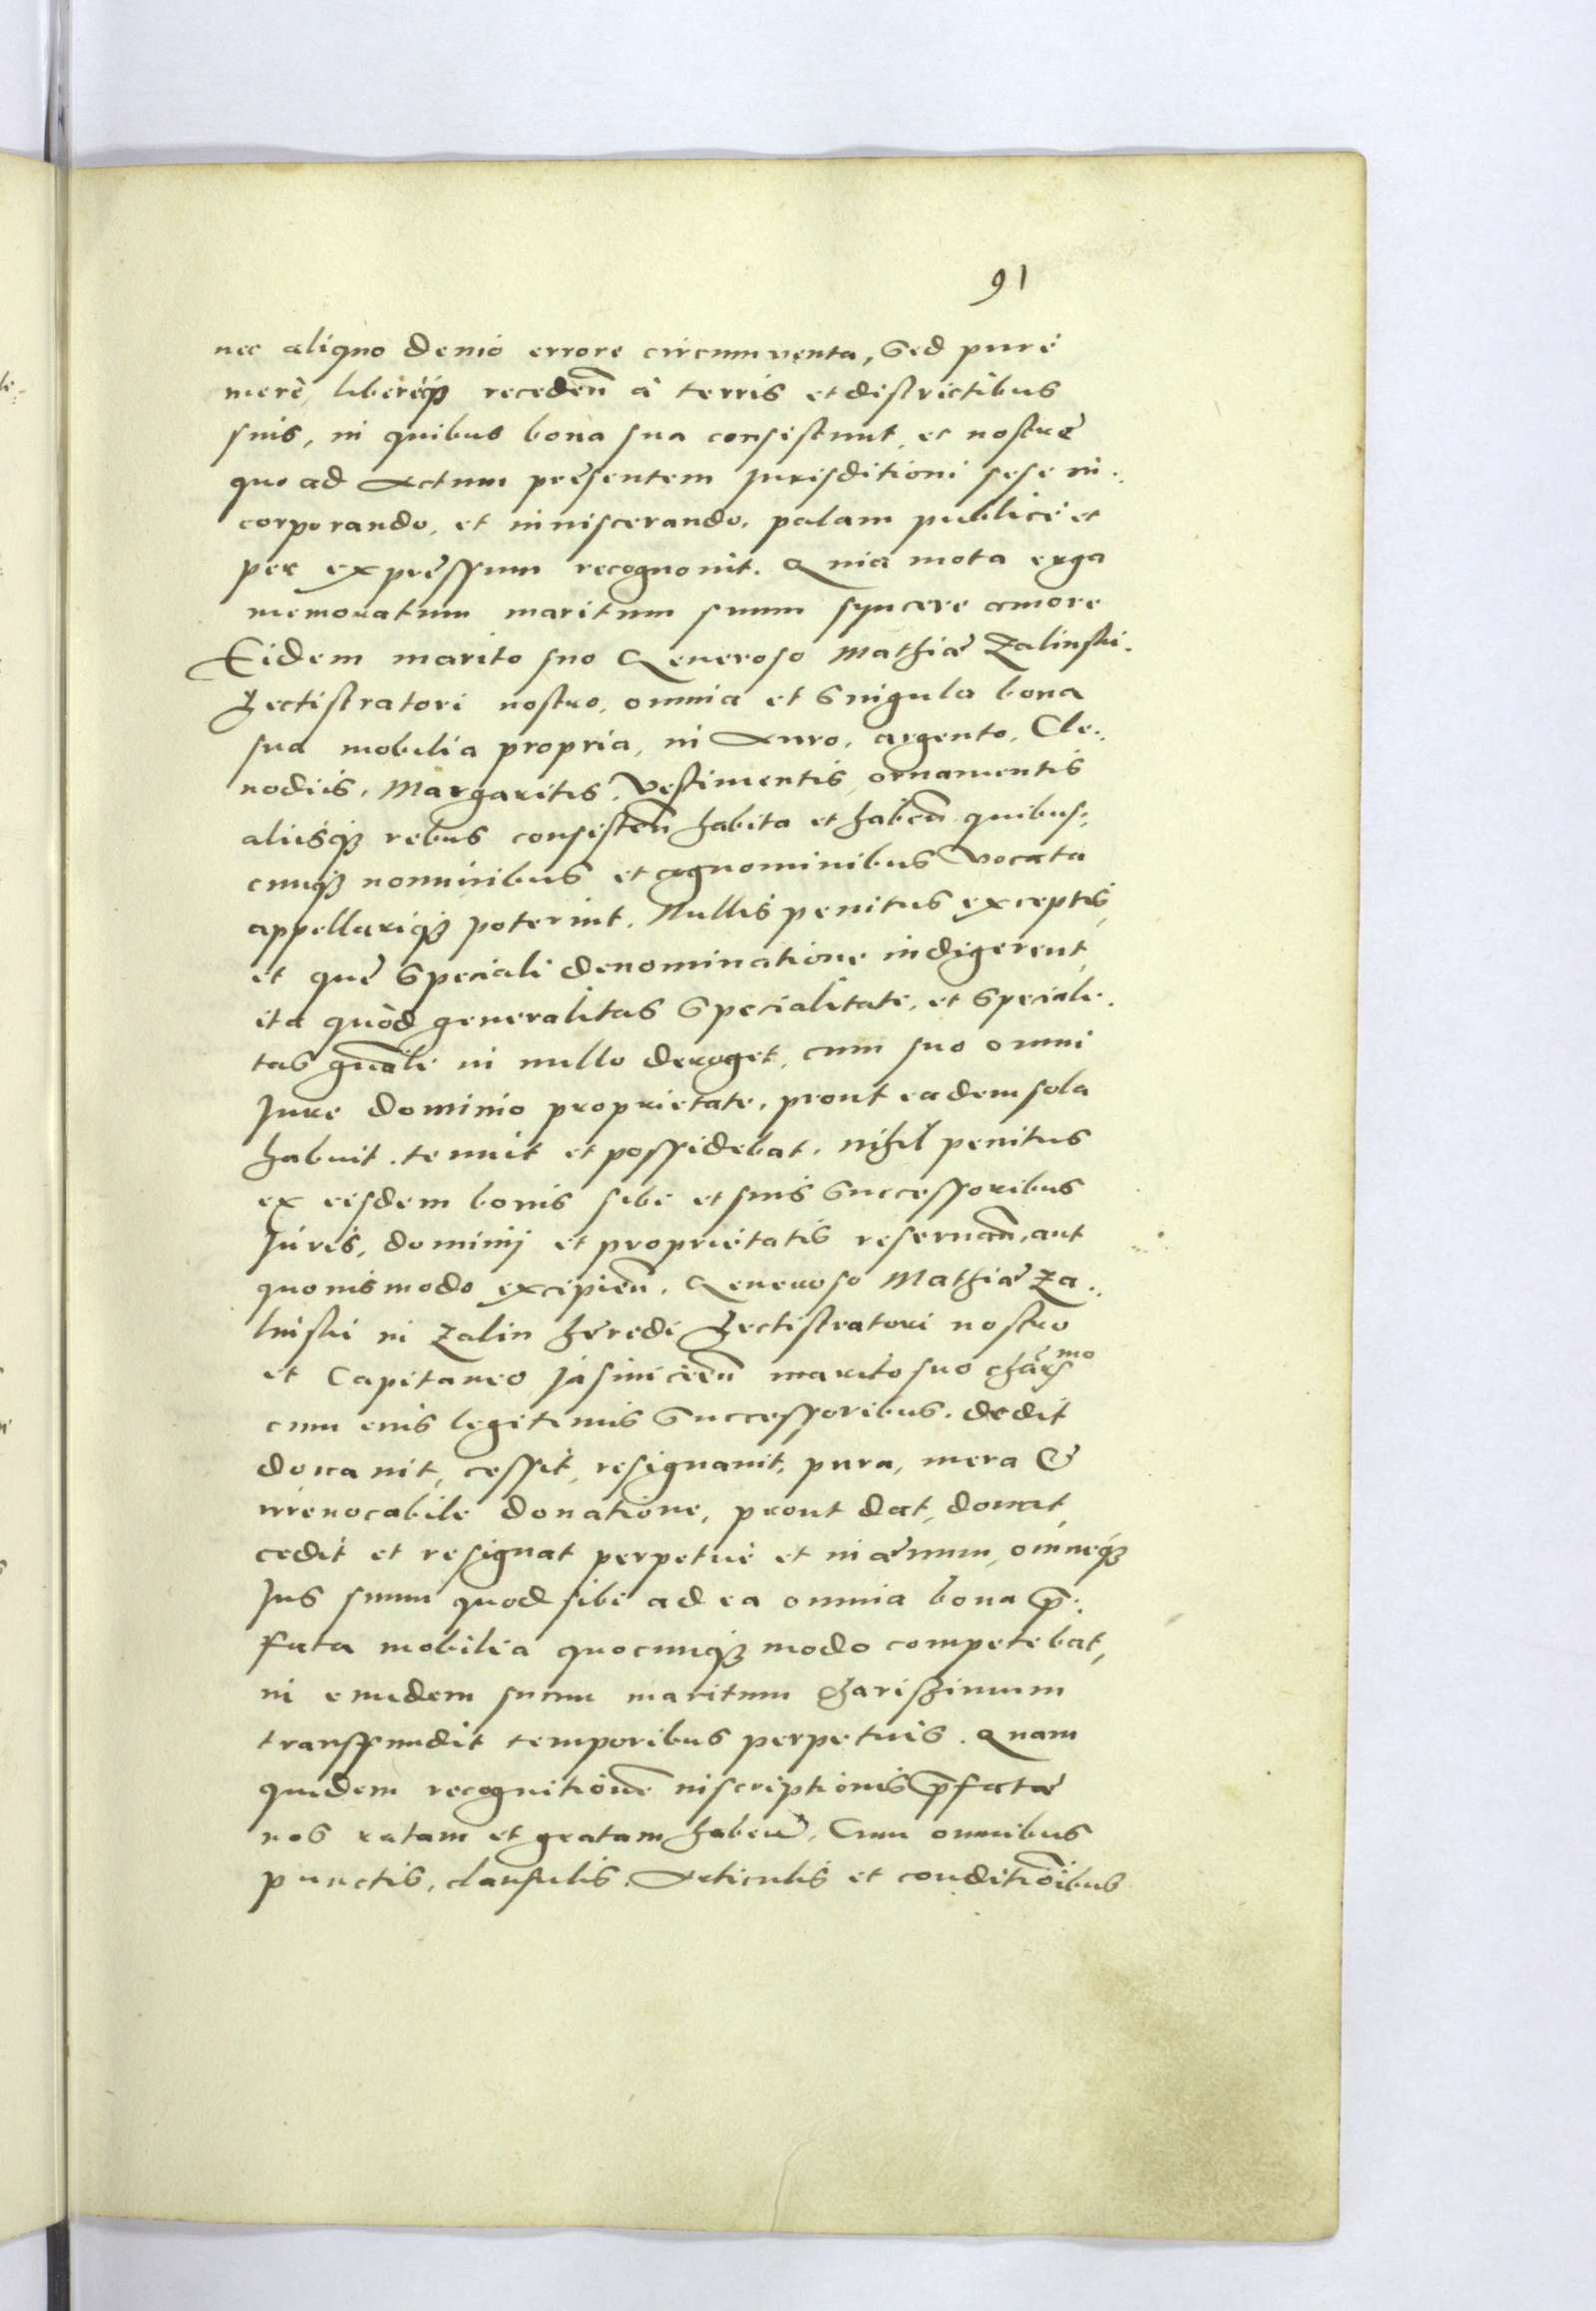 91
nec aliquo devio errore circumventa, sed purè
merè, liberèq3 receden̄ à terris et districtibus
suis, in quibus bona sua consistunt, et nostrę
quo ad Actum pręsentem Jurisditioni sese in:
corporando, et inviscerando, palam publicè et
per expręssum recognovit. Quia mota erga
memoratum maritum suum syncere amore
Eidem marito suo Generoso Mathię Zalinski.
Vectistratori nostro, omnia et singula bona
sua mobilia propria, in Auro, argento, Cle:
nodiis, Margaritis, Vestimentis, ornamentis
aliisq3 rebus consisten̄ habita et haben̄ quibus:
cunq3 nominibus et cognominibus vocata
appellariq3 poterint. Nullis penitus exceptis,
et quę speciali denominatione indigerent,
ita quòd generalitas specialitate, et speciali.
tas gn̄ali in nullo deroget, cum suo omni
Jure dominio proprietate, prout eadem sola
habuit, tenuit et possidebat, nihil penitus
ex eisdem bonis sibi et suis successoribus
Juris, dominij et proprietatis reservan̄, aut
quovismodo excipien̄. Generoso Mathię Za:
linski in Zalin hęredi Vectistratori nostro
et Capitaneo Jasinicen̄ marito suo charismo
cum eius legitimis successoribus. dedit
donavit, cessit, resignavit, pura, mera &
irrevocabile donatione, prout dat, donat,
cedit et resignat perpetuè et in ævum, omneq3
Jus suum quod sibi ad ea omnia bona p̄:
fata mobilia quocunq3 modo competebat,
in eundem suum maritum charissimum
transfundit temporibus perpetuis. Quam
quidem recognitionē inscriptionis p̄fatæ
nos ratam et gratam haben̄, Cum omnibus
punctis, clausulis, Articulis et conditio͞ibus